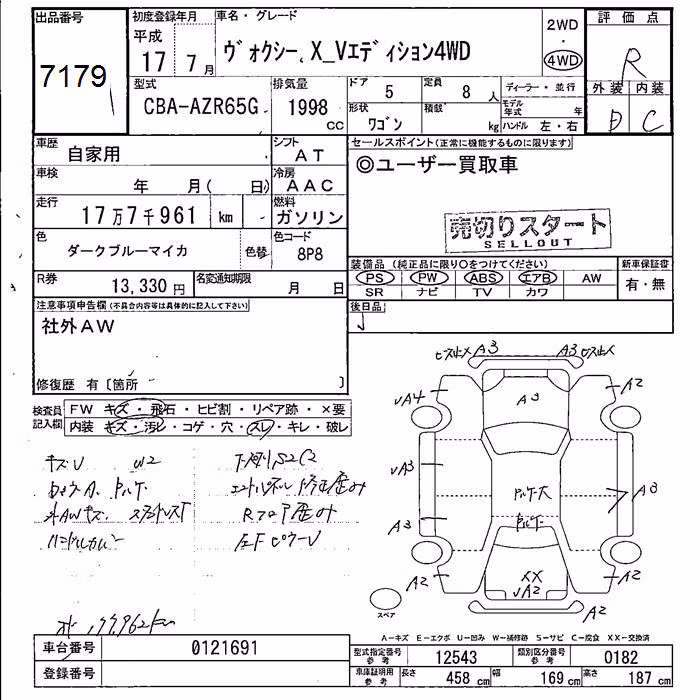 出品番号
7179
初度登録年月
平成
17年 7月
車名・グレード
ヴォクシー, X_Vエディション4WD
2WD
・
4WD
評価点
R
外装 内装
D C
型式
CBA-AZR65G
排気量
1998
cc
ドア
5
定員
8人
形状
ワゴン
積載
kg
ディーラー・並行
モデル年式
年
ハンドル 左・右
車歴
自家用
シフト
AT
車検
年 月( 日)
冷房
AAC
走行
17万7千961 km
燃料
ガソリン
色
ダークブルーマイカ
色替
色コード
8P8
R券
13,330 円
名変通知期限
月 日
セールスポイント(正常に機能するものに限ります)
◎ユーザー買取車
売切りスタート
SELLOUT
装備品(純正品に限り○をつけてください)
PS PW ABS エアB AW
SR ナビ TV カワ
新車保証書
有・無
注意事項申告欄(不具合内容等は具体的に記入して下さい)
社外AW
修復歴 有〔箇所 〕
後日品
検査員記入欄
FW キズ・飛石・ヒビ割・リペア跡・×要
内装 キズ・汚レ・コゲ・穴・スレ・キレ・破レ
キズU W2
下廻りS2C2
外AWキズ
Rフロア歪み
ハンドルカバー
A3
A3
A3
A2
A3
A3
A2
XX
A2
A2
A2
スペア
A―キズ E―エクボ U―凹み W―補修跡 S―サビ C―腐食 XX―交換済
車台番号
0121691
登録番号
型式指定番号
参考
12543
類別区分番号
参考
0182
車庫証明用
参考
長さ
458 cm
幅
169 cm
高さ
187 cm